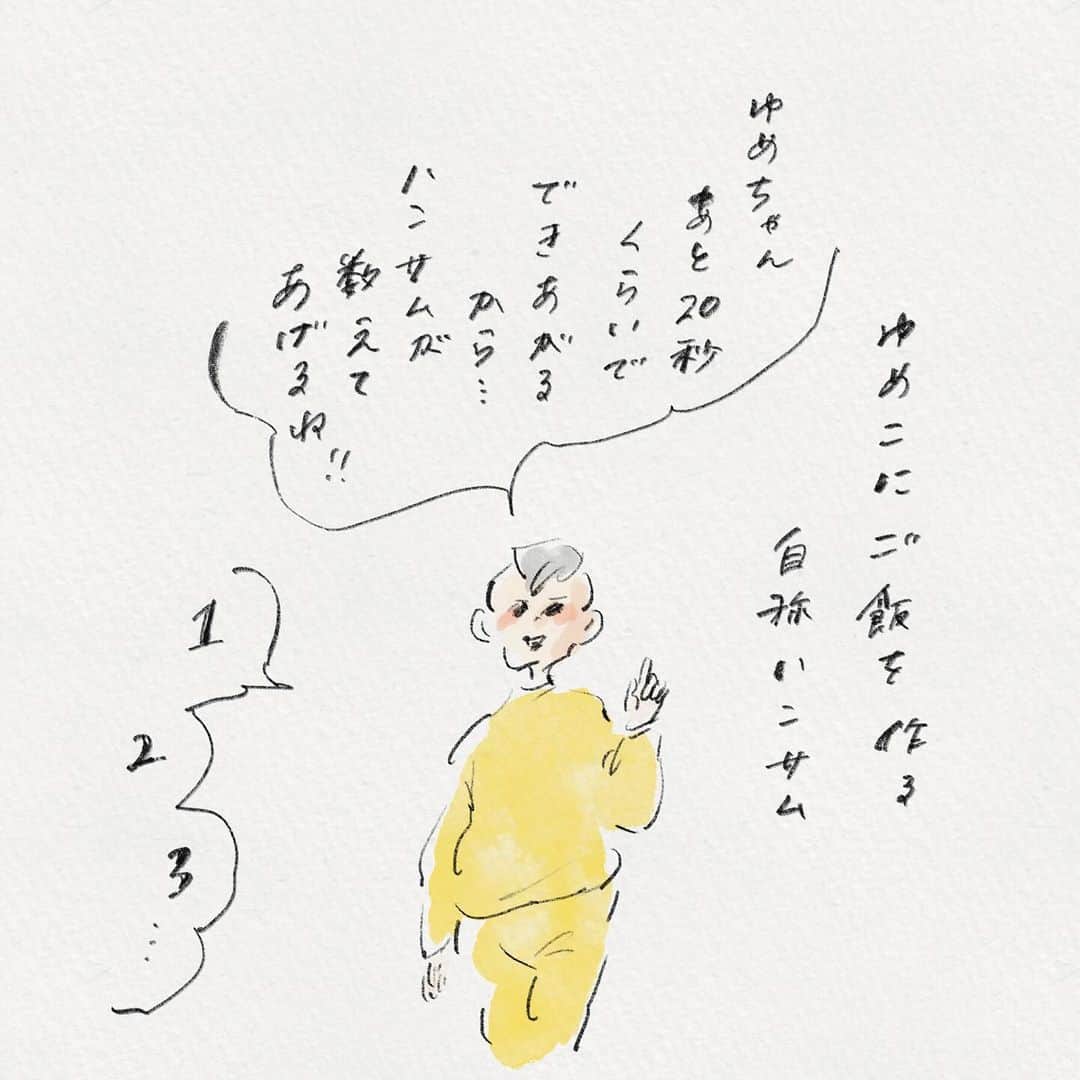 ゆめこにご飯を作る
自称ハンサム
ゆめちゃん
あと20秒
くらいで
できあがる
から…
ハンサムが
数えて
あげるね!!
1
2
3
…